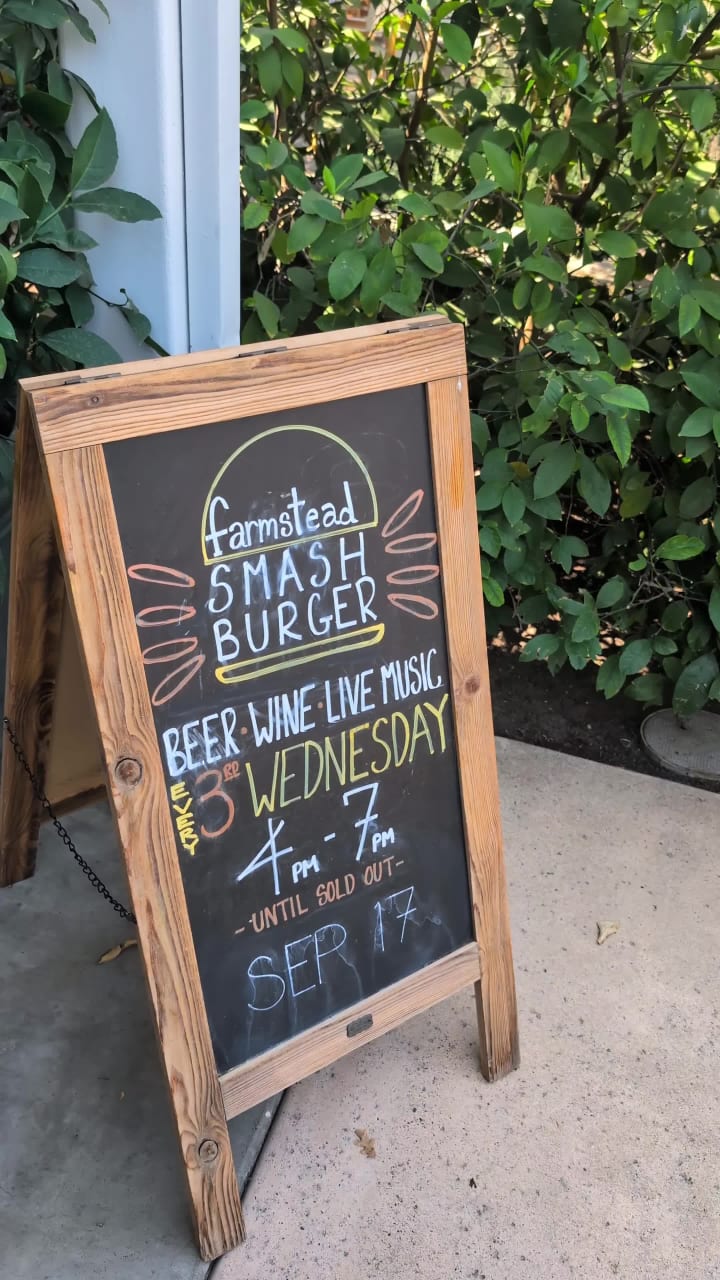 farmstead
SMASH
BURGER
BEER · WINE · LIVE MUSIC
EVERY 3RD WEDNESDAY
4PM - 7PM
-UNTIL SOLD OUT-
SEP 17